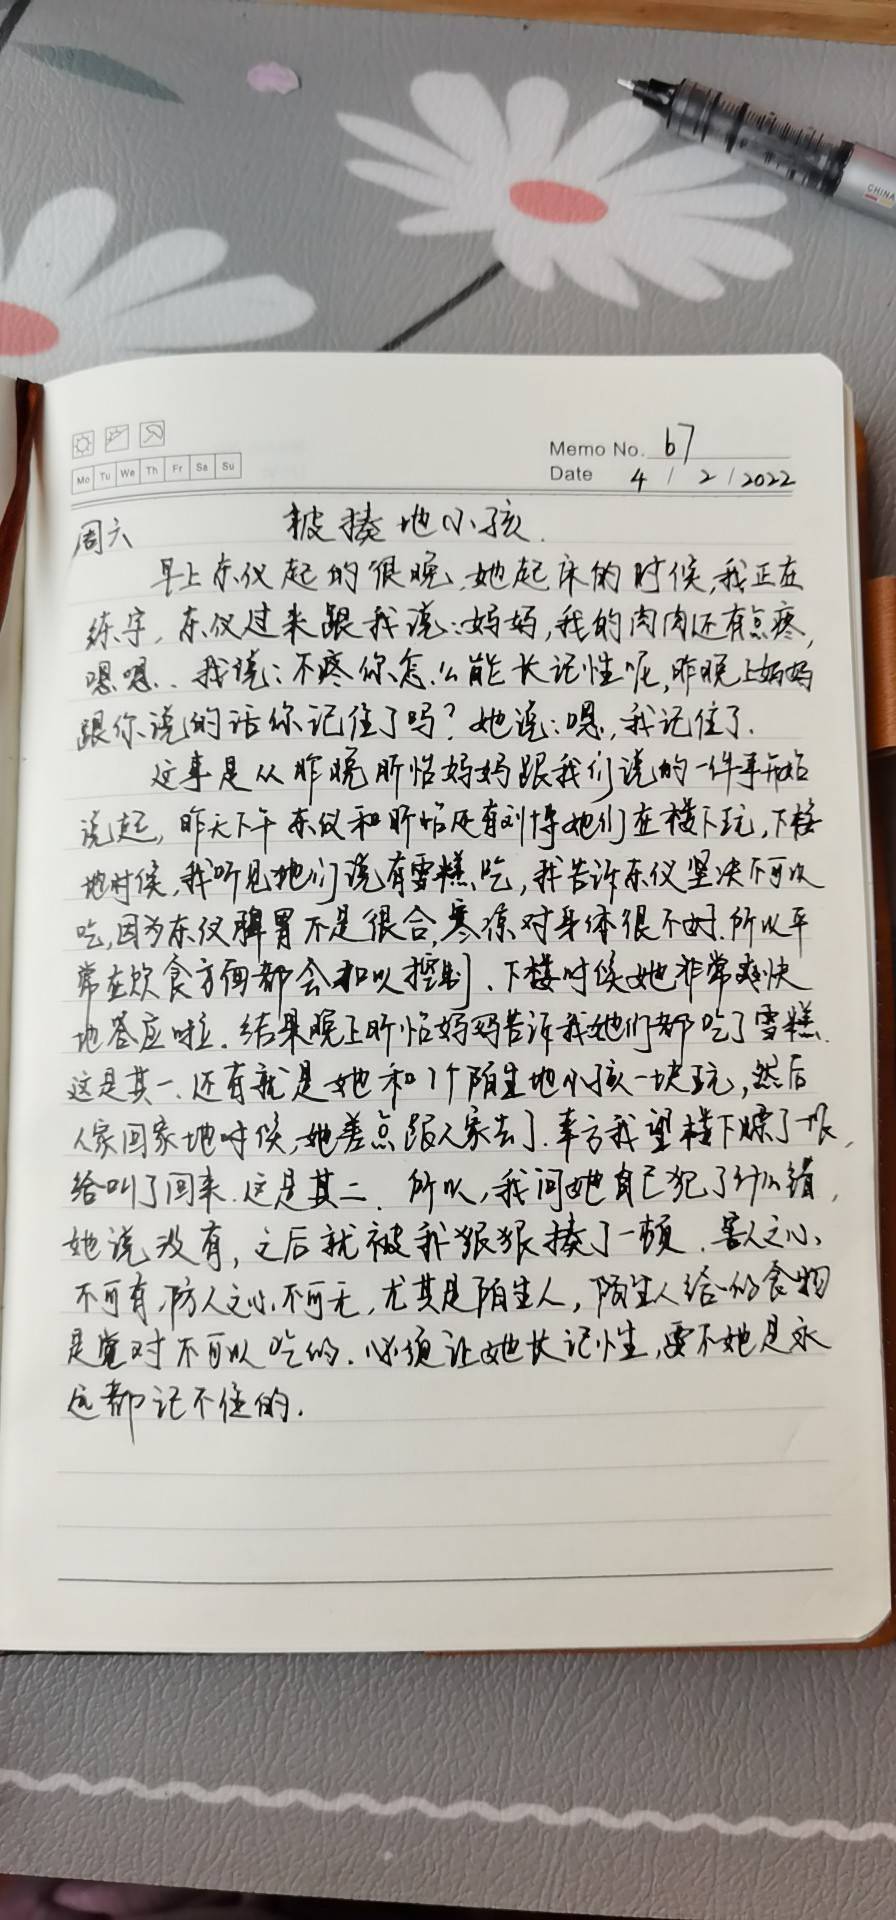 CHINA
Memo No. 67
Mo Tu We Th Fr Sa Su
Date 4 / 2 / 2022
周六 被揍地小孩.
早上东仪起的很晚,她起床的时候,我正在
练字,东仪过来跟我说:妈妈,我的肉肉还有点疼,
嗯嗯..我说:不疼你怎么能长记性呢,昨晚上妈妈
跟你说的话你记住了吗?她说:嗯,我记住了.
这事是从昨晚昕怡妈妈跟我们说的一件事开始
说起,昨天下午东仪和昕怡还有刘博她们在楼下玩,下楼
地时候,我听见她们说有雪糕吃,我告诉东仪坚决不可以
吃,因为东仪脾胃不是很合,寒凉对身体很不好.所以平
常在饮食方面都会加以控制.下楼时候她非常爽快
地答应啦.结果晚上昕怡妈妈告诉我她们都吃了雪糕.
这是其一.还有就是她和1个陌生地小孩一块玩,然后
人家回家地时候,她差点跟人家去了.幸亏我望楼下瞟了一眼,
给叫了回来.这是其二.所以,我问她自己犯了什么错,
她说没有,之后就被我狠狠揍了一顿.害人之心
不可有,防人之心不可无,尤其是陌生人,陌生人给的食物
是绝对不可以吃的.必须让她长记性,要不她是永
远都记不住的.